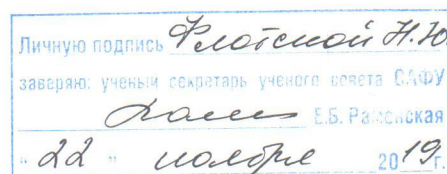 Личную подпись Флотской Н.Ю
заверяю: ученый секретарь ученого совета САФУ
Е.Б. Раменская
" 22 " ноября 2019 г.